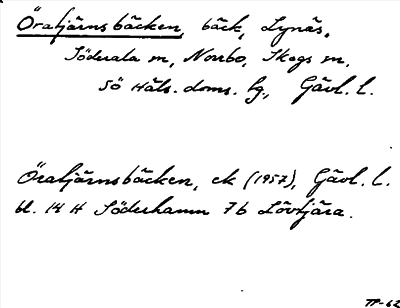 Öratjärnsbäcken, bäck, Lynäs,
Söderala sn, Norrbo, Skogs sn,
SÖ Häls. doms. lg., Gävl. l.
Öratjärnsbäcken, ek (1957), Gävl. l.
bl. 14 H Söderhamn 7b Lövtjära.
TP-62